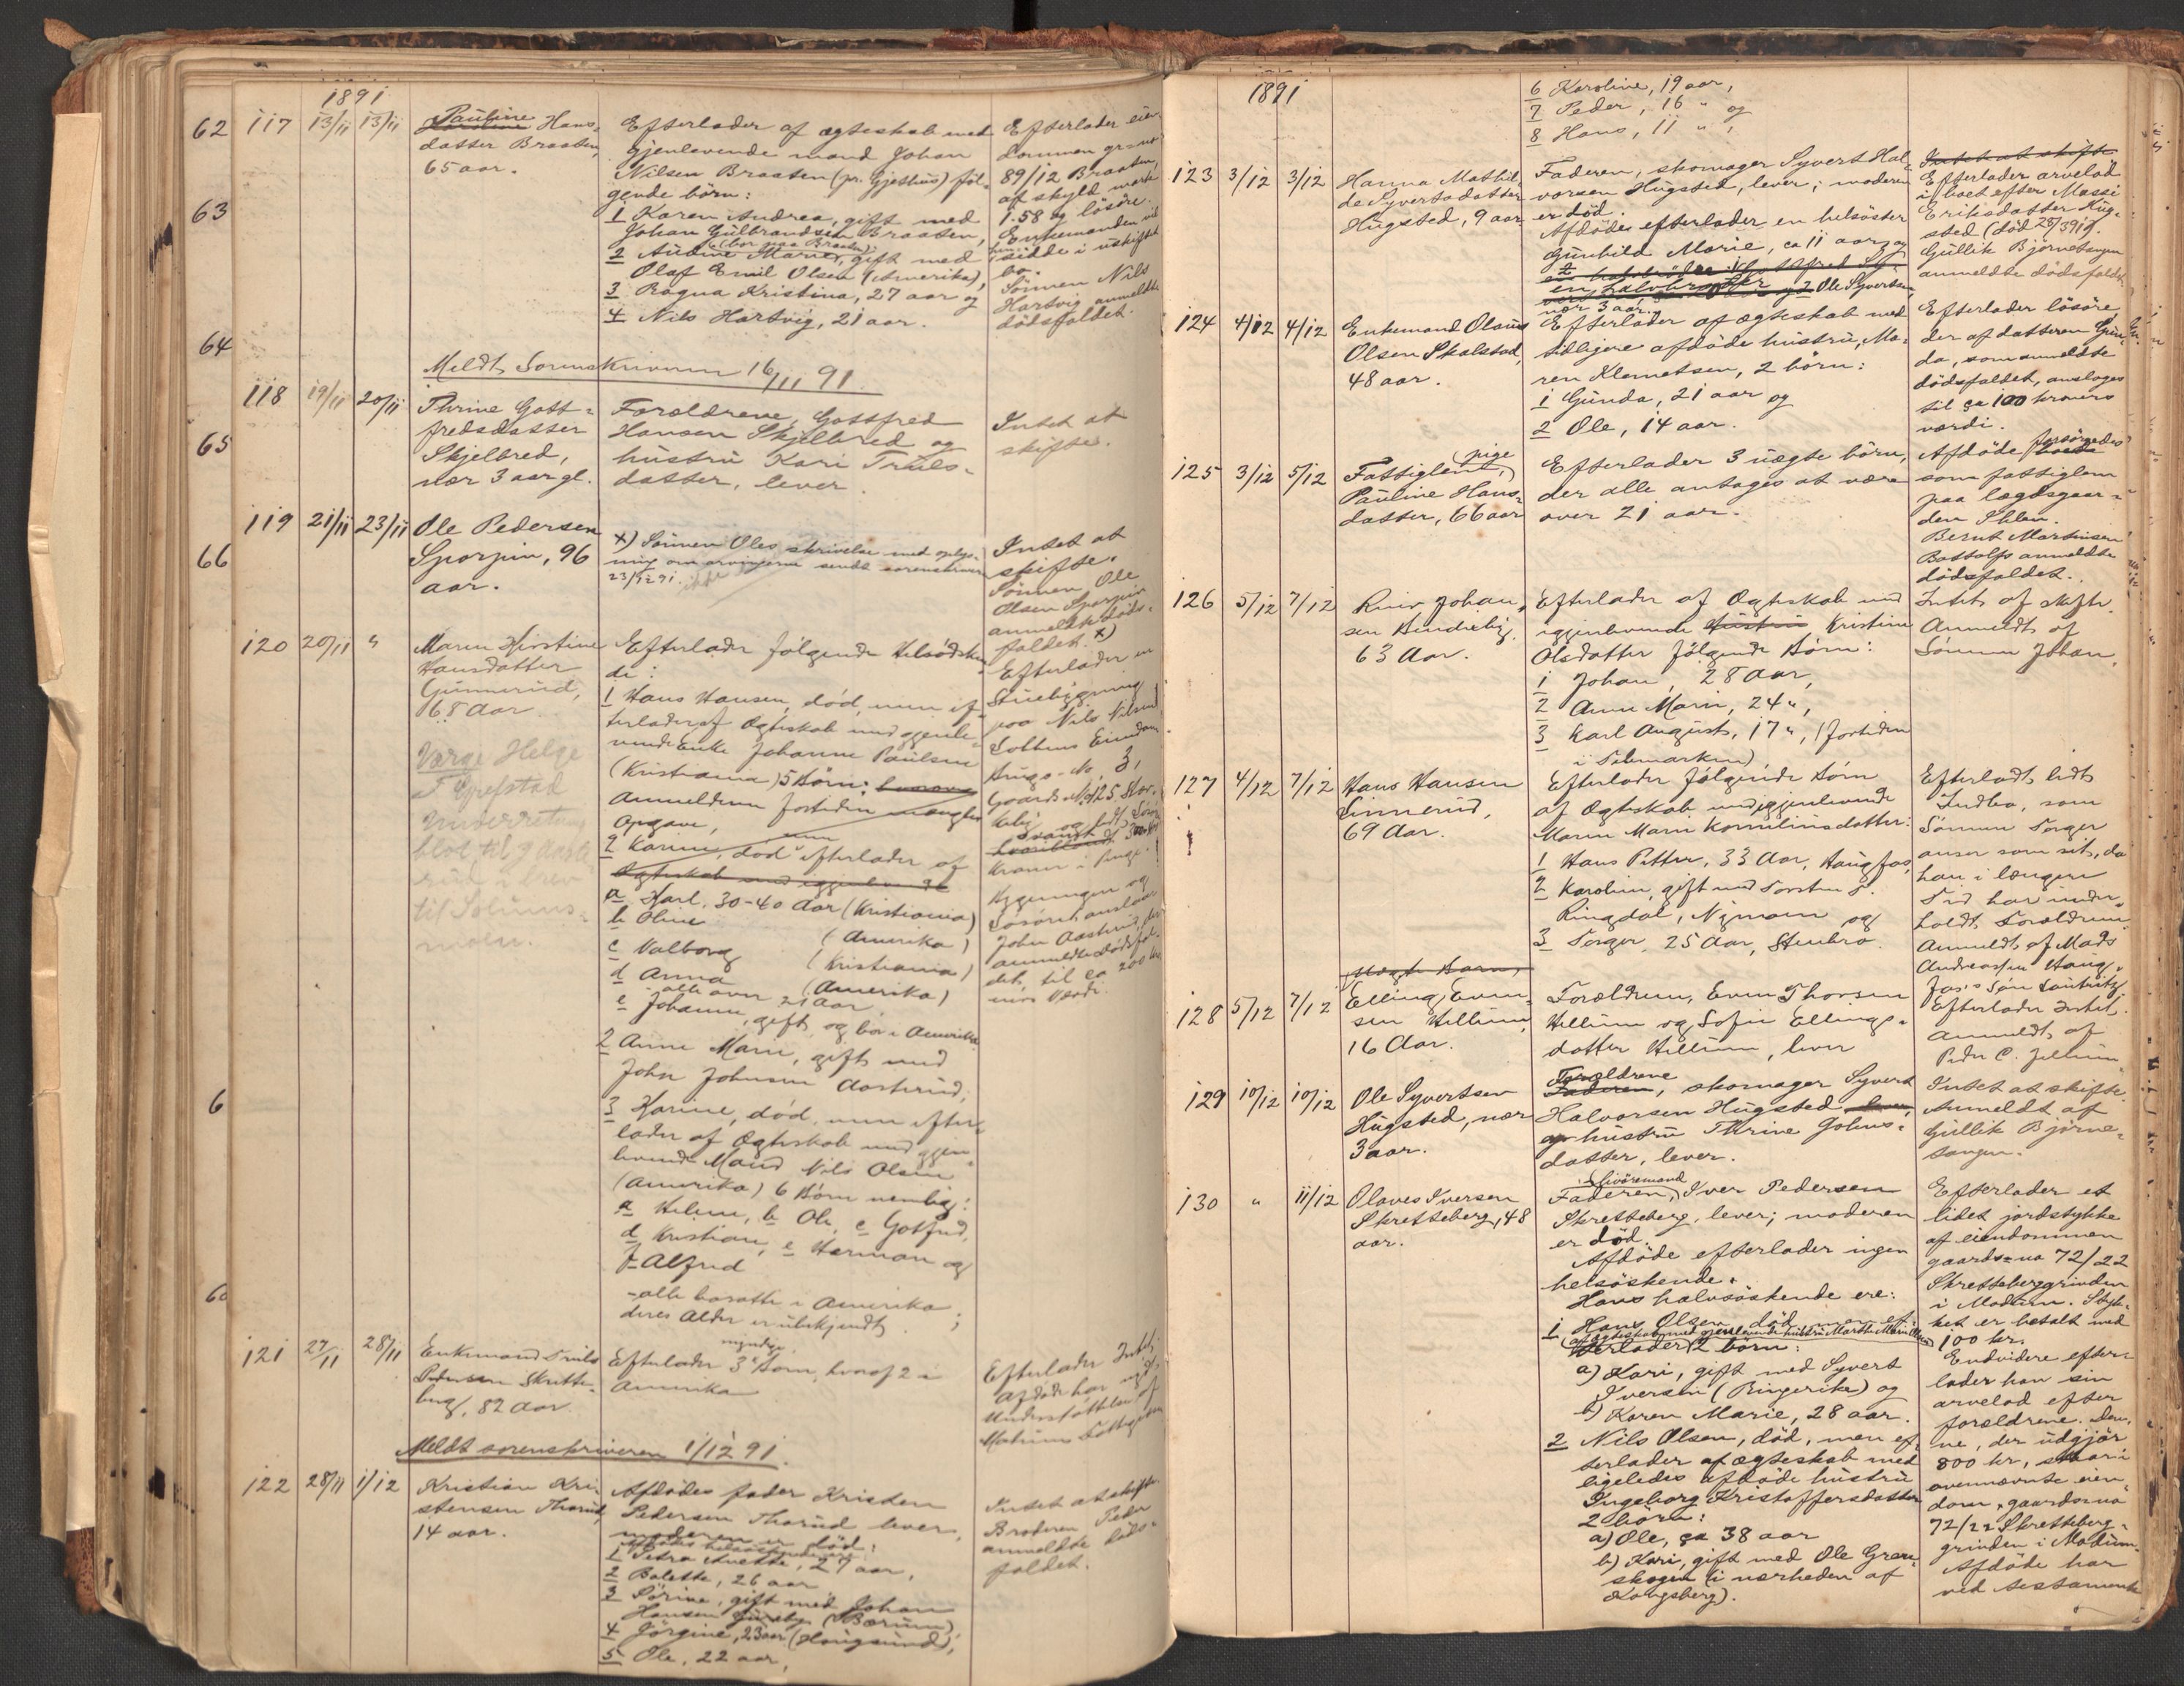 1891
62
117 13/11 13/11
Pauline
Karoline Hans-
datter Braaten,
65 aar.
Efterlader af ægteskab med
gjenlevende mand Johan
Nilsen Braaten (pr. Gjethus) føl-
gende børn:
1 Karen Andrea, gift med
Johan Gulbrandsen Braaten,
(bor paa Braaten),
2 Audine Marie, gift med
Olaf Emil Olsen (Amerika),
3 Ragna Kristina, 27 aar og
4 Nils Hartvig, 21 aar.
Efterlader eien-
dommen gr-no
89/12 Braaten,
af skyld mark
1.58 og løsøre.
Enkemanden vil
sidde i uskiftet
bo.
Sønnen Nils
Hartvig anmeldte
dødsfaldet.
63
64
Meldt Sorenskriveren 16/11 91.
118 19/11 20/11
Thrine Gott-
fredsdatter
Skjelbred,
nær 3 aar gl.
Forældrene, Gottfred
Hansen Skjelbred og
hustru Kari Truls-
datter, lever.
Intet at
skifte.
65
119 21/11 23/11
Ole Pedersen
Sporpin, 96
aar.
x) Sønnen Oles skrivelse med oplys-
ning om arvingerne sendt sorenskriveren
23/12 91.
Intet at
skifte.
Sønnen Ole
Olsen Sporpin
anmeldte døds-
faldet. x)
66
120 20/11 "
Maren Kirstine
Hansdatter
Gunnerud,
68 Aar.
Værge Helge
T Grefstad
Underretning
til Solums-
moen.
Efterlader følgende Helsødsken-
de:
1 Hans Hansen, død, men ef-
terlader af Ægteskab med gjenle-
vende Enke Johanne Paulsen
(Kristiania) 5 Børn, hvorom
Anmelderen fortiden mangler
Opgave,
2 Karine, død men efterlader af
Ægteskab med igjenlevende
a Karl, 30-40 Aar (Kristiania)
b Oline (Amerika)
c Valborg (Kristiania)
d Anna (Amerika)
alle over 21 Aar
e Johanne, gift og bor i Amerika
2 Anne Marie, gift med
John Johnsen Aasterud,
3 Karine, død, men efter-
lader af Ægteskab med gjen-
levende Mand Nils Olsen
(Amerika) 6 Børn nemlig:
a Helene, b Ole, c Gotfred,
d Kristian, e Herman og
f Alfred
- alle bosatte i Amerika
deres Alder er ubekjendt;
Efterlader en
Stuebygning
paa Nils Nilsen
Eiendom
Brugs-No 3,
Gaards-No 125
Kroner i Penge.
Bygningen og
Løsøret anslaar
John Aasterud, der
anmeldte Dødsfal-
det, til ca 200 Kro-
ners Værdi.
6
60
121 27/11 28/11
Enkemand Truls
Pedersen Skrette-
berg, 82 Aar.
myndige
Efterlader 3 Børn, hvoraf 2 i
Amerika
Efterlader Intet,
Afdøde har nydt
Understøttelse af
Modums Fattigvæsen
Meldt sorenskriveren 1/12 91.
122 28/11 1/12
Kristian Kri-
stensen Thorud,
14 aar.
Afdødes fader Kristen
Pedersen Thorud lever,
moderen er død:
Afdødes helsøskende ere:
1 Petra Anette, 27 aar,
2 Bolette, 26 aar
3 Sørine, gift med Johan
Hansen (Bærum),
4 Jørgine, 23 aar (Haugsund),
5 Ole, 22 aar,
Intet at skifte.
Broderen Peder
anmeldte døds-
faldet.
1891
6 Karoline, 19 aar,
7 Peder, 16 " og
8 Hans, 11 ",
123 3/12 3/12
Hanna Mathil-
de Syvertsdatter
Hugsted, 9 aar
Faderen, skomager Syvert Hal-
vorsen Hugsted, lever; moderen
er død.
Afdøde efterlader en helsøster
Gunhild Marie, ca 11 aar, og
en halvbroder Ole Syvertsen,
nær 3 aar.
Intet at skifte
Efterlader arvelod
i boet efter Massi
Eriksdatter Hug-
sted (død 28/3 91).
Gullik Bjørnetangen
anmeldte dødsfaldet
124 4/12 4/12
Enkemand Olaus
Olsen Skalstad,
48 aar.
Efterlader af ægteskab med
tidligere afdøde hustru, Ma-
ren Klemetsen, 2 børn:
1 Gunda, 21 aar og
2 Ole, 14 aar.
Efterlader løsøre,
der af datteren Gun-
da, som anmeldte
dødsfaldet, ansloges
til ca 100 kroners
værdi.
125 3/12 5/12
pige
Fattiglem,
Pauline Hans-
datter, 66 aar
Efterlader 3 uægte børn,
der alle antages at være
over 21 aar.
forsørgedes
Afdøde boede
som fattiglem
paa lægdsgaar-
den Ihlen.
Bernt Martinsen
Bottolfs anmeldte
dødsfaldet.
126 5/12 7/12
Johan-
sen
63 Aar.
Efterlader af Ægteskab med
igjenlevende Hustru Kristine
Olsdatter følgende Børn:
1 Johan, 28 Aar,
2 Anne Marie, 24 ",
3 Karl August, 17 ", (fortiden
i Telemarken)
Intet at skifte.
Anmeldt af
Sønnen Johan.
127 4/12 7/12
Hans Hansen
Linnerud,
69 Aar.
Efterlader følgende Børn
af Ægteskab med igjenlevende
Maren Marie Kornelinsdatter:
1 Hans Petter, 33 Aar, Haugfos,
2 Karoline, gift med Torsten T.
Ringdal, Nymoen og
3 Torger, 25 Aar, Stenbro.
Efterladt lidt
Indbo, som
Sønnen Torger
anser som sit, da
han i længere
Tid har under-
holdt Forældrene.
Anmeldt af Mads
Andreassen Haug-
fos's Søn
128 5/12 7/12
Uægte Barn,
Elling Even-
sen Hellum,
16 Aar.
Forældrene, Even Thorsen
Hellum og Sofie Ellings-
datter Hellum, lever
Efterlader Intet.
Anmeldt af
Peder C. Jellum
129 10/12 10/12
Ole Syvertsen
Hugsted, nær
3 aar.
Forældrene
Faderen, skomager Syvert
Halvorsen Hugsted lever,
og hustru Thrine Johns-
datter, lever.
Intet at skifte.
Anmeldt af
Gullik Bjørne-
tangen.
130 " 11/12
Olaves Iversen
Skretteberg, 48
aar.
livøremand
Faderen, Iver Pedersen
Skretteberg, lever; moderen
er død.
Afdøde efterlader ingen
helsøskende.
Hans halvsøskende ere:
1 Hans Olsen, død men ef-
(af ægteskab med gjenlevende hustru Marthe Marie Olsen)
terlader 2 børn:
a) Kari, gift med Syvert
Iversen (Ringerike) og
b) Karen Marie, 28 aar.
2 Nils Olsen, død, men ef-
terlader af ægteskab med
ligeledes afdøde hustru
Ingeborg Kristoffersdatter
2 børn:
a) Ole, ca 38 aar
b) Kari, gift med Ole Gran-
skogen (i nærheden af
Kongsberg).
Efterlader et
lidet jordstykke
af eiendommen
gaards-no 72/22
Skretteberggrinden
i Modum. Styk-
ket er betalt med
100 kr.
Endvidere efter-
lader han sin
arvelod efter
forældrene. Den-
ne, der udgjør
800 kr, staar i
ovennævnte eien-
dom, gaards-no
72/22 Skretteberg-
grinden i Modum.
Afdøde har
ved testamente